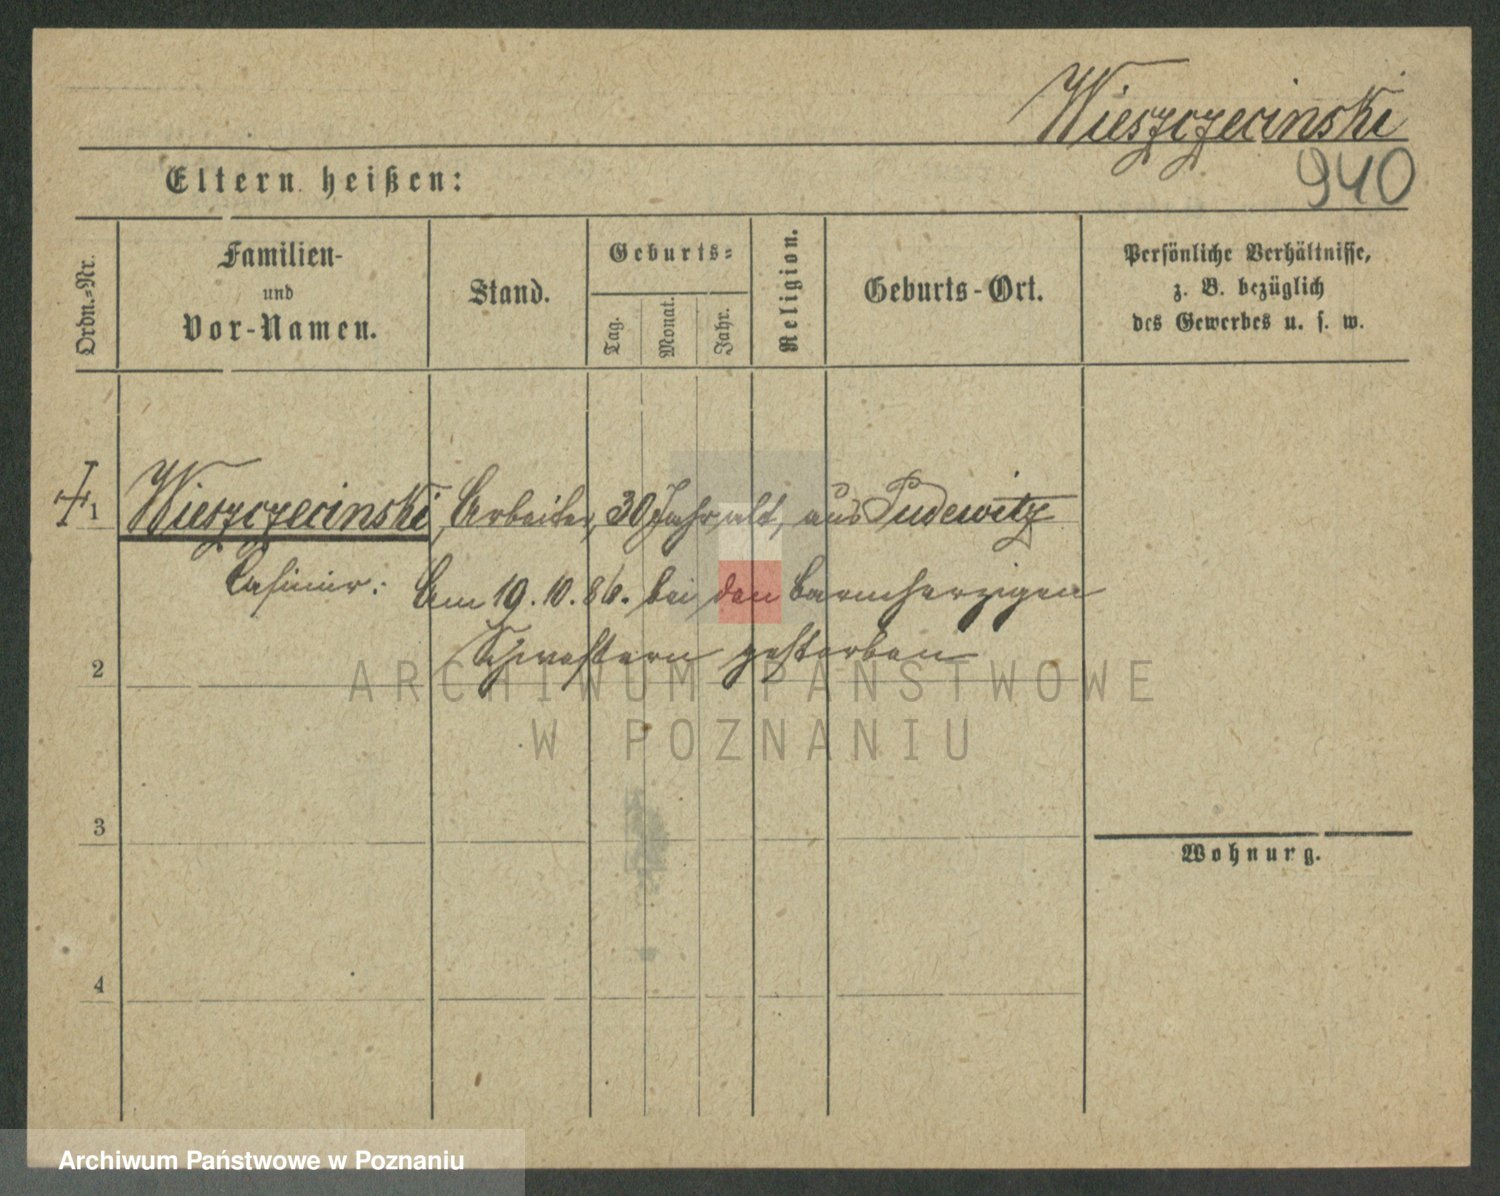 Wieszczecinski
940
Eltern heißen:
Ordn.=Nr.
Familien-
und
Vor-Namen.
Stand.
Geburts=
Tag.
Monat.
Jahr.
Religion.
Geburts-Ort.
Persönliche Verhältnisse,
z. B. bezüglich
des Gewerbes u. s. w.
1 Wieszczecinski, Arbeiter, 30 Jahr alt, aus Pudewitz
Casimir. Am 19.10.86. bei den barmherzigen
Schwestern gestorben
2
ARCHIWUM PAŃSTWOWE
W POZNANIU
3
Wohnurg.
4
Archiwum Państwowe w Poznaniu